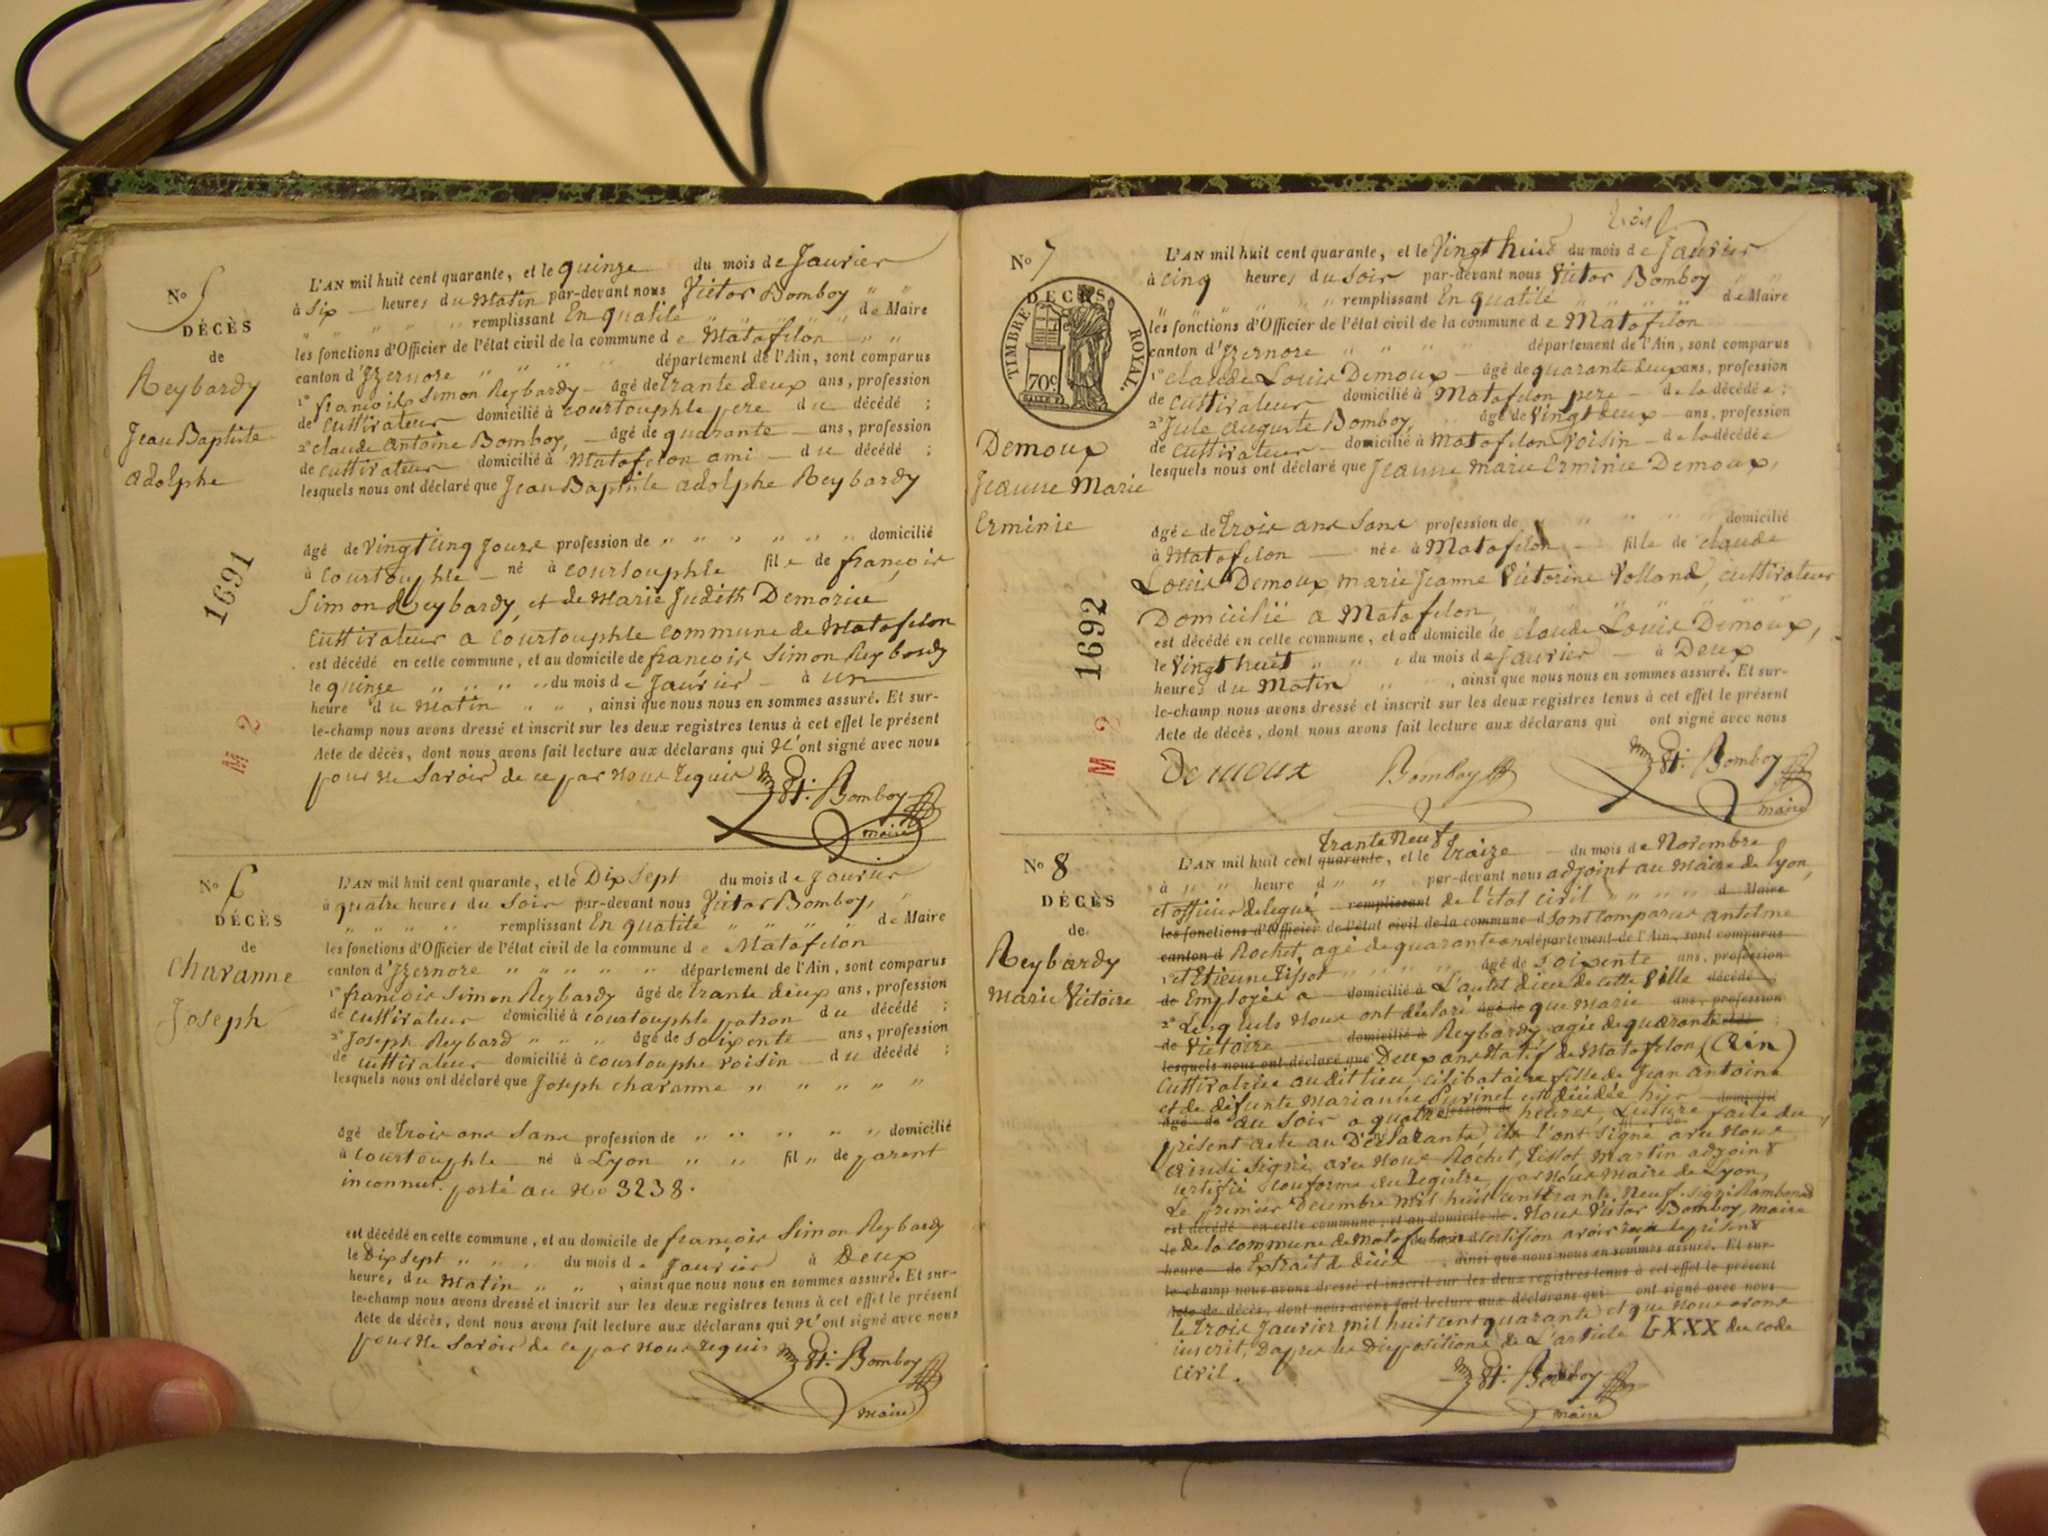 N° 5
DÉCÈS
de
Reybardy
Jean Baptiste
adolphe
1691
M 2
L'AN mil huit cent quarante, et le quinze du mois de Janvier
à Six heures du Matin par-devant nous Victor Bomboy
remplissant En qualité de Maire
les fonctions d'Officier de l'état civil de la commune de Matafelon
canton d'Izernore département de l'Ain, sont comparus
1° françois Simon Reybardy âgé de trante deux ans, profession
de cultivateur domicilié à courtouphle pere du décédé ;
2° claude Antoine Bomboy, âgé de quarante ans, profession
de cultivateur domicilié à Matafelon ami du décédé ;
lesquels nous ont déclaré que Jean Baptiste adolphe Reybardy
âgé de vingt cinq Jours profession de domicilié
à courtouphle né à courtouphle fils de françois
Simon Reybardy, et de Marie Judith Demorie
Cultivateur a courtouphle commune de Matafelon
est décédé en cette commune, et au domicile de françois Simon Reybardy
le quinze du mois de Janvier à un
heure du Matin , ainsi que nous nous en sommes assuré. Et sur-
le-champ nous avons dressé et inscrit sur les deux registres tenus à cet effet le présent
Acte de décès, dont nous avons fait lecture aux déclarans qui N'ont signé avec nous
pour Ne Savoir de ce par Nous requis
Vt. Bomboy
maire
N° 6
DÉCÈS
de
charanne
Joseph
L'AN mil huit cent quarante, et le Dix Sept du mois de Janvier
à quatre heures du Soir par-devant nous Victor Bomboy,
remplissant En qualité de Maire
les fonctions d'Officier de l'état civil de la commune de Matafelon
canton d'Izernore département de l'Ain, sont comparus
1° françois Simon Reybardy âgé de trante deux ans, profession
de cultivateur domicilié à courtouphle patron du décédé ;
2° Joseph Reybard âgé de soixente ans, profession
de cultivateur domicilié à courtouphe voisin du décédé ;
lesquels nous ont déclaré que Joseph charanne
âgé de trois ans Sans profession de domicilié
à courtouphle né à Lyon fil de parent
inconnus. porté au No 3238.
est décédé en cette commune, et au domicile de françois Simon Reybardy
le Dix sept du mois de Janvier à Deux
heures du Matin , ainsi que nous nous en sommes assuré. Et sur-
le-champ nous avons dressé et inscrit sur les deux registres tenus à cet effet le présent
Acte de décès, dont nous avons fait lecture aux déclarans qui N'ont signé avec nous
pour Ne Savoir de ce par Nous requis
Vt. Bomboy
maire
N° 7
DÉCÈS
TIMBRE ROYAL.
70c
Demoux
Jeanne Marie
Erminie
1692
M 2
L'AN mil huit cent quarante, et le Vingt huit du mois de Janvier
à cinq heures du Soir par-devant nous Victor Bomboy
remplissant En qualité de Maire
les fonctions d'Officier de l'état civil de la commune de Matafelon
canton d'Izernore département de l'Ain, sont comparus
1° claude Louis Demoux âgé de quarante deux ans, profession
de cultivateur domicilié à Matafelon pere de la décédée ;
2° Jule auguste Bomboy, âgé de Vingt deux ans, profession
de cultivateur domicilié à Matafelon Voisin de la décédée
lesquels nous ont déclaré que Jeanne Marie Erminie Demoux,
âgée de trois ans Sans profession de domicilié
à Matafelon née à Matafelon fille de claude
Louis Demoux marie Jeanne Victorine Volland, cultivateur
Domicilié a Matafelon,
est décédé en cette commune, et au domicile de claude Louis Demoux,
le Vingt huit du mois de Janvier à Deux
heures du Matin , ainsi que nous nous en sommes assuré. Et sur-
le-champ nous avons dressé et inscrit sur les deux registres tenus à cet effet le présent
Acte de décès, dont nous avons fait lecture aux déclarans qui ont signé avec nous
Demoux Bomboy Vt. Bomboy
maire
N° 8
DÉCÈS
de
Reybardy
Marie Victoire
trante Neuf
L'AN mil huit cent quarante, et le traize du mois de Novembre
à heure d par-devant nous adjoint au Maire de Lyon,
et officier delegué remplissant de l'état civil d Maire
les fonctions d'Officier de l'état civil de la commune d Sont comparus antelme
canton d Rochet, agé de quarante ans département de l'Ain, sont comparus
1° et Etienne Tissot âgé de soixente ans, profession
de Employés a domicilié à L'autel dieu de cette Ville décédé ;
2° Lesquels Nous ont déclaré âgé de que Marie ans, profession
de Victoire domicilié à Reybardy, agée de quarante
lesquels nous ont déclaré que Deux ans Natif de Matafelon (Ain)
Cultivatrice au dit lieu, célibataire fille de Jean antoine
et de défunte Marianne est décédée hier domicilié
âgé de au Soir a quatre profession de heures, Lecture faite du
présent acte au Déclarants, ils l'ont signé avec Nous
ainsi Signé avec Nous Rochet, Tissot Martin adjoint
certifié conforme au Registre, par Nous Maire de Lyon,
Le premier Decembre mil huit cent trante Neuf. signé
est décédé en cette commune, et au domicile de Nous Victor Bomboy, maire
le de la commune de Matafelon certifion avoir le présent
heure de Extrait de décés , ainsi que nous nous en sommes assuré. Et sur-
le-champ nous avons dressé et inscrit sur les deux registres tenus à cet effet le présent
Acte de décès, dont nous avons fait lecture aux déclarans qui ont signé avec nous
le trois Janvier mil huit cent quarante et que Nous avons
inscrit, Dapres les Dispositions de L'article LXXX du code
civil.
Vt. Bomboy
maire